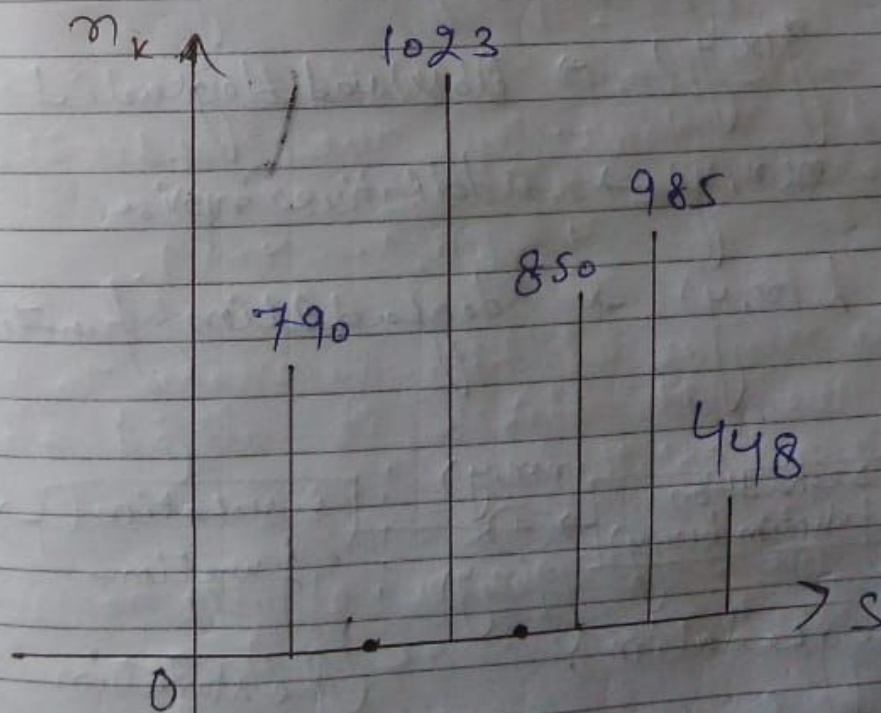 n_k
1023
985
850
790
448
S
0